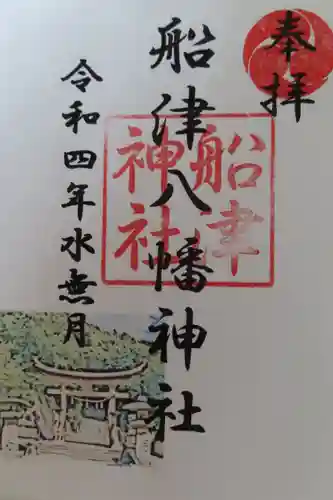 奉拝
船津八幡神社
船津
神社
令和四年水無月